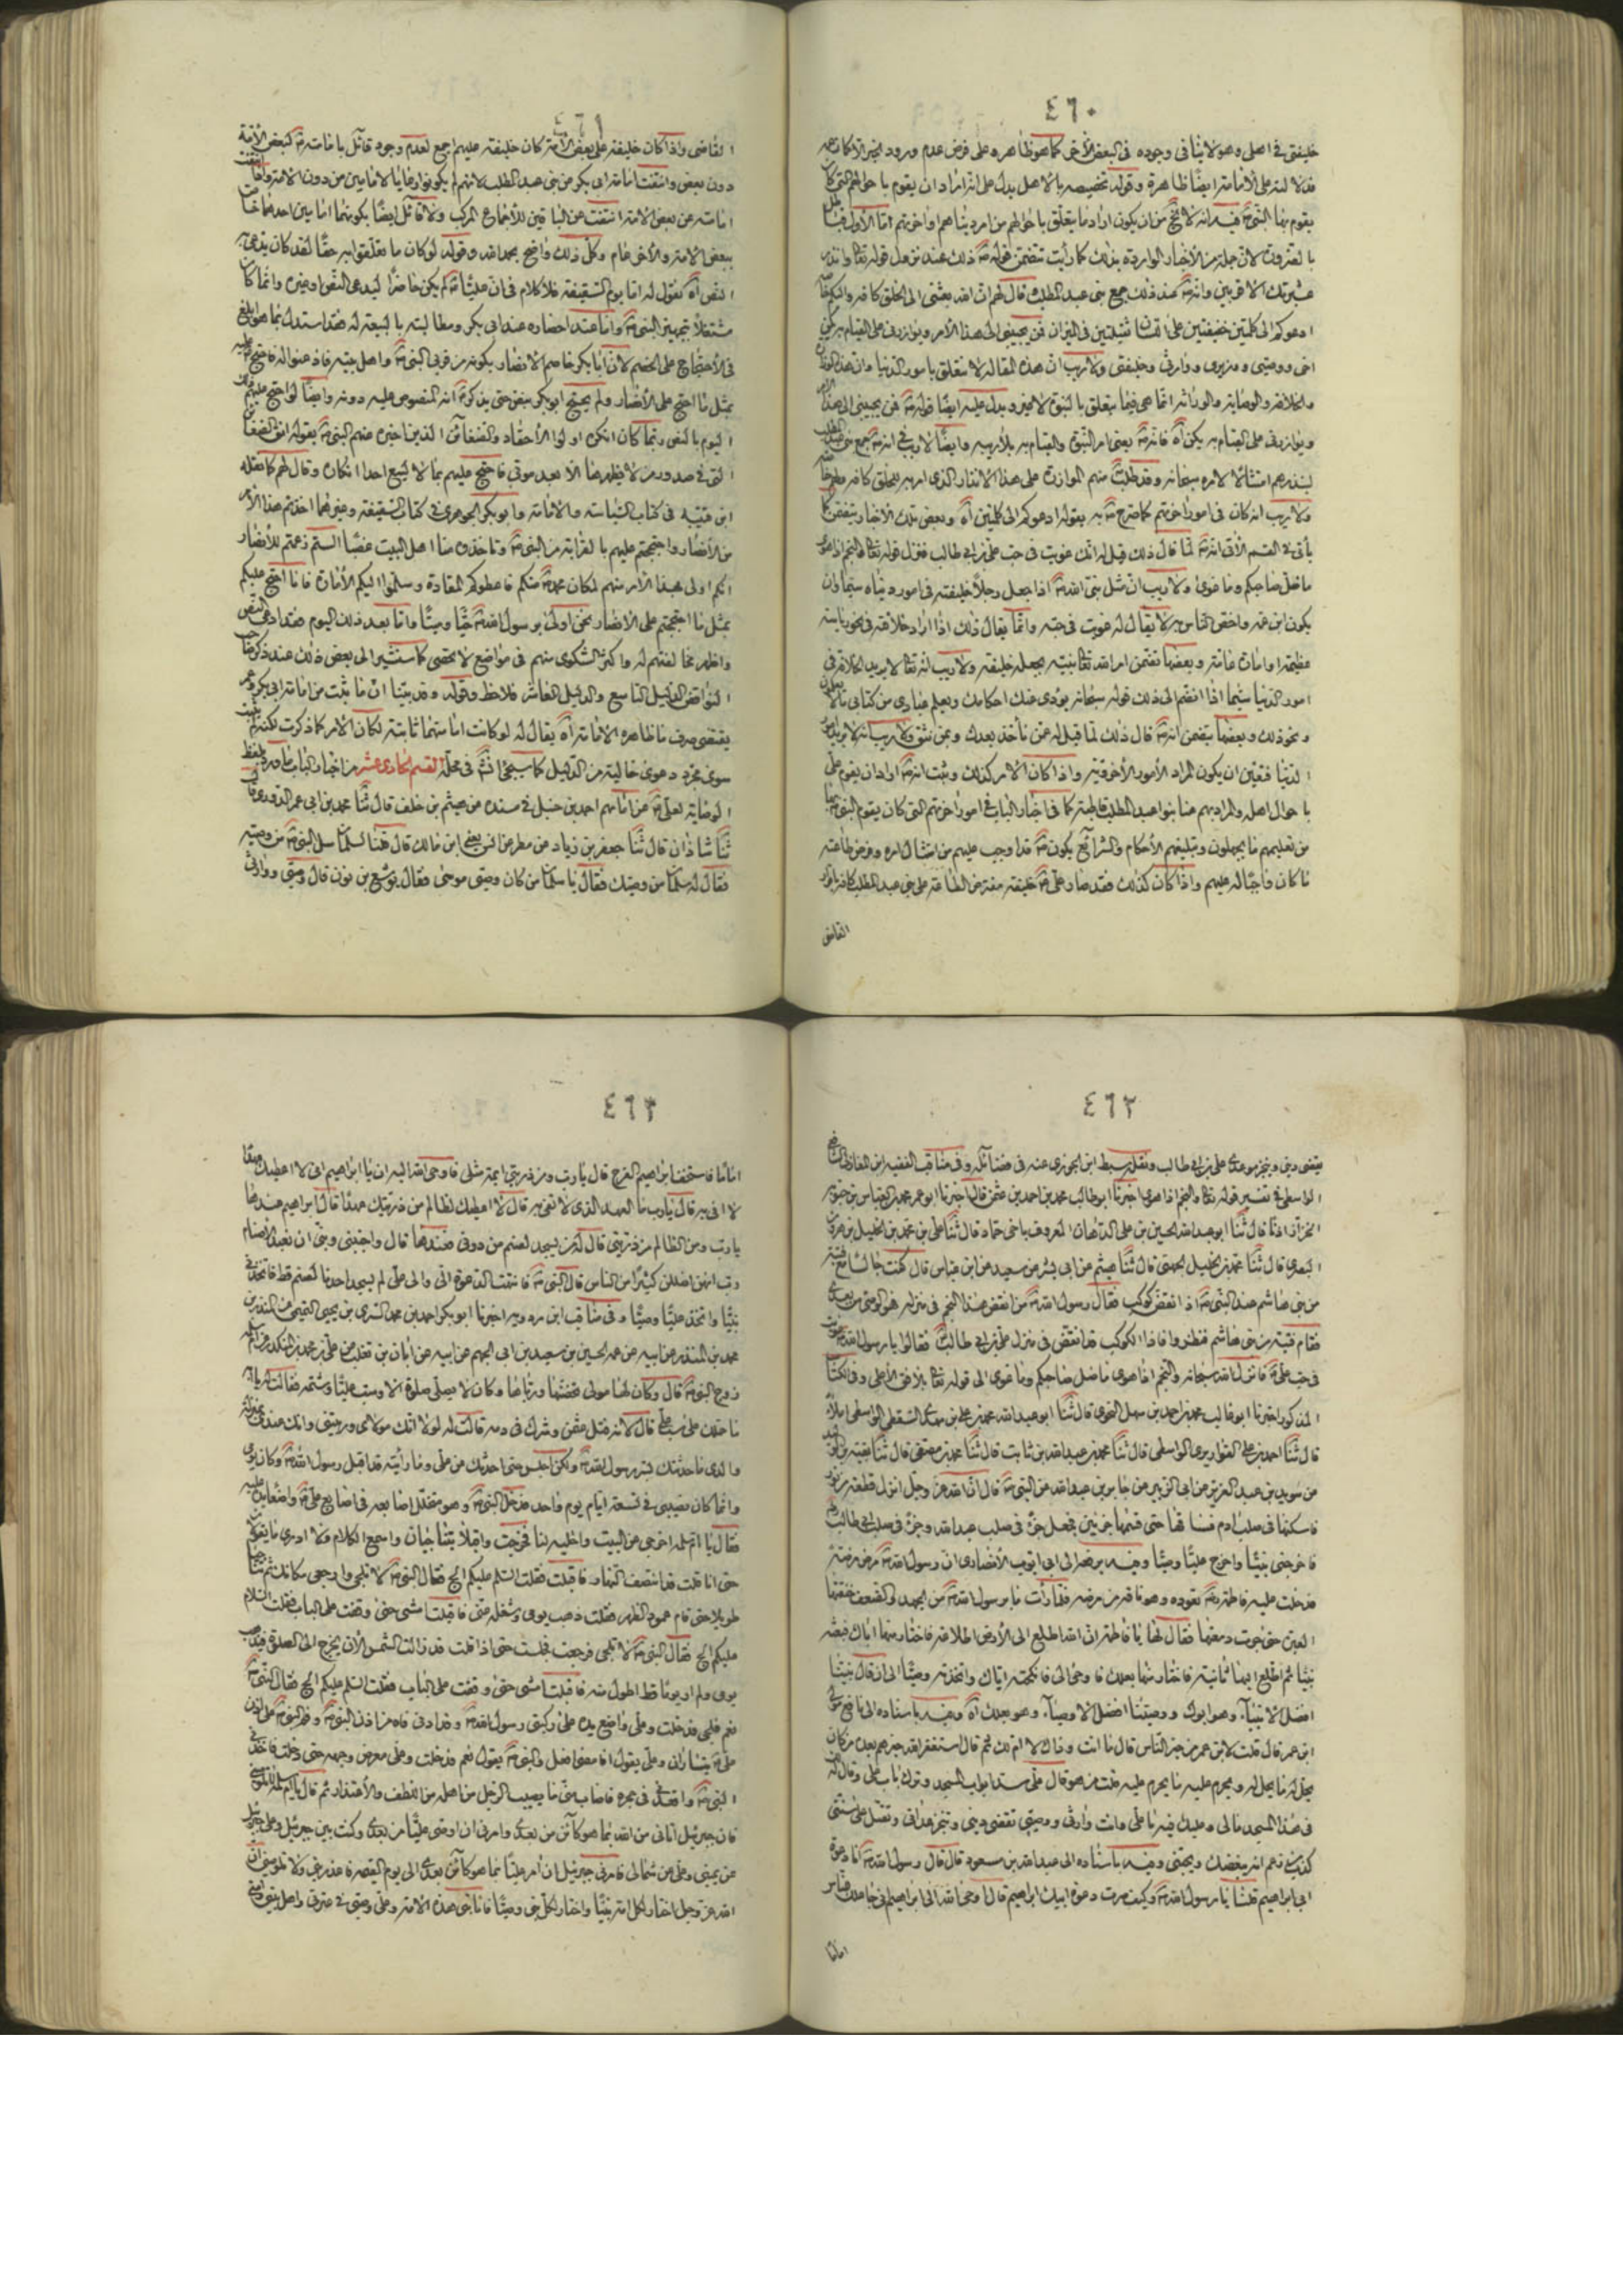 ٤٦٠
خليفتى فى اهلى وهو لا ينافى وجوده فى البعض الآخر كما هو ظاهر وعلى فرض عدم ورود
فدلالته على الامامة ايضا ظاهرة وقوله تخصيصه بالاهل يدل على انه اراد ان يقوم باحوالهم التى كان
يقوم بها النبى فيه انه لا يخ من ان يكون اراد ما يتعلق باحوالهم من امر دنياهم او اخرتهم اما الاول فباطل
بالضرورة لان جملة من الاخبار الواردة بذلك كما رأيت تتضمن قوله ذلك عند نزول قوله تعا وانذر
عشيرتك الاقربين وانه عند ذلك جمع بنى عبد المطلب وقال لهم ان الله بعثنى الى الخلق كافة واليكم خاصة
ادعوكم الى كلمتين خفيفتين على اللسان ثقيلتين فى الميزان فمن يجيبنى الى هذا الامر ويوازرنى على القيام به يكن
اخى ووصيى ووزيرى ووارثى وخليفتى ولا ريب ان هذه المقالة لا تتعلق بامور الدنيا وان هذه
والخلافة والوصاية والوراثة انما هى فيما يتعلق بالنبوة لا غير ويدل عليه ايضا قوله فمن يجيبنى الى هذا الامر
ويوازرنى على القيام به يكن آه فانه يعنى امر النبوة والقيام به بلا ريب وايضا لا ريب فى انه جمع بنى عبد المطلب
لينذرهم امتثالا لامره سبحانه وقد طلب منهم الموازرة على هذا الانذار الذى امر به للخلق كافة ولهم خاصة
ولا ريب انه كان فى امور اخرتهم كما صرح به بقوله ادعوكم الى كلمتين آه وبعض تلك الاخبار يتضمن كما
يأتى فى القسم الآتى انه لما قال ذلك قيل له انك غويت فى حب على بن ابى طالب فنزل قوله تعا والنجم اذا هوى
ما ضل صاحبكم وما غوى ولا ريب ان مثل نبى الله اذا جعل رجلا خليفته فى امور دنياه سيما وان
يكون ابن عمه واخص الناس به لا يقال له غويت فى حبه وانما يقال ذلك اذا اراد خلافته فى نحو رياسة
عظيمة او امامة عامة وبعضها تضمن امر الله تعا نبيه بجعله خليفة ولا ريب انه تعا لا يريد الخلافة فى
امور الدنيا سيما اذا انضم الى ذلك قوله سبحانه يؤدى عنك احكامك ويعلم عبادى من كتابى ما لا يعلمون
ونحو ذلك وبعضها يتضمن انه قال ذلك لما قيل له عمن نأخذ بعدك وبمن نثق ولا ريب انه لا يريد امور
الدنيا فتعين ان يكون المراد الامور الاخروية واذا كان الامر كذلك وثبت انه اراد ان يقوم على
باحوال اهله والمراد بهم هنا بنوا عبد المطلب قاطبة كما فى اخبار الباب فى امور اخرتهم التى كان يقوم النبى بها
من تعليمهم ما يجهلون وتبليغهم الاحكام والشرائع يكون قد اوجب عليهم من امتثال امره وفرض طاعته
ما كان واجبا له عليهم واذا كان كذلك فقد صار على خليفة مفترض الطاعة على بنى عبد المطلب كافة باقرار
القاضى
٤٦١
القاضى واذا كان خليفة على بعض الامة كان خليفة عليهم اجمع لعدم وجود قائل بامامته لبعض الامة
دون بعض وانتفت امامة ابى بكر عن بنى عبد المطلب لانهم لم يكونوا رعايا لامامين من دون الامة واذا انتفت
امامته عن بعض الامة انتفت عن الباقين للاجماع المركب ولا قائل ايضا بكونهما امامين احدهما خاص
ببعض الامة والاخر عام وكل ذلك واضح بحمد الله وقوله لو كان ما تعلقوا به حقا لقد كان يدعى
النص آه نقول له اما يوم السقيفة فلا كلام فى ان عليا لم يكن حاضرا ليدعى النص او غيره وانما كان
مشتغلا بتجهيز النبى واما عند احضاره عند ابى بكر ومطالبته بالبيعة له فقد استدل بما هو ابلغ
فى الاحتجاج على الخصم لان ابا بكر خاصم الانصار بكونه من قربى النبى واهل بيته فاذعنوا له فاحتج عليه
بمثل ما احتج على الانصار ولم يحتج ابو بكر بنص حتى يذكر انه المنصوص عليه دونه وايضا لو احتج عليهم
اليوم بالنص ربما كان انكره اولوا الاحقاد والضغائن الذين اخبره عنهم النبى بقوله اتق الضغائن
التى فى صدور من لا يظهرها الا بعد موتى فاحتج عليهم بما لا يسع احدا انكاره وقال لهم كما نقله
ابن قتيبة فى كتاب السياسة والامامة وابو بكر الجوهرى فى كتاب السقيفة وغيرهما اخذتم هذا الامر
من الانصار واحتججتم عليهم بالقرابة من النبى وتأخذوه منا اهل البيت غصبا الستم زعمتم للانصار
انكم اولى بهذا الامر منهم لمكان محمد منكم فاعطوكم المقادة وسلموا اليكم الامارة فانا احتج عليكم
بمثل ما احتججتم على الانصار نحن اولى برسول الله حيا وميتا واما بعد ذلك اليوم فقد ادعى النص
واظهر مخالفتهم له واكثر الشكوى منهم فى مواضع لا تحصى كما سنشير الى بعض ذلك عند ذكر
النواقض الدليل التاسع والدليل العاشر فلاحظ وقوله وقد بينا ان ما ثبت من امامة ابى بكر
يقتضى صرف ما ظاهره الامامة آه يقال له لو كانت امامتهما ثابتة لكان الامر كما ذكرت لكنه ليست
سوى مجرد دعوى خالية من الدليل كما سيجئ انشا فى محله القسم الحادى عشر من اخبار الباب ما ورد بلفظ
الوصاية لعلى عن امامهم احمد بن حنبل فى مسنده عن هيثم بن خلف قال ثنا محمد بن ابى عمر الدورى قال
ثنا شاذان قال ثنا جعفر بن زياد عن مطر عن انس يعنى ابن مالك قال قلنا لسلمان سل النبى من وصيه
فقال له سلمان من وصيك فقال يا سلمان من كان وصى موسى فقال يوشع بن نون قال وصيى ووارثى
٤٦٢
يقضى دينى وينجز موعدى على بن ابى طالب ونقله سبط ابن الجوزى عنه فى فضائله وفى مناقب الفقيه ابن المغازلى
الواسطى فى تفسير قوله تعا والنجم اذا هوى اخبرنا ابو طالب محمد بن احمد بن عثمن قال اخبرنا ابو عمر محمد بن العباس بن حيويه
الخزاز اذنا قال ثنا ابو عبد الله الحسين بن على الدهان المعروف باخى حماد قال ثنا على بن محمد بن الخليل بن هرون
البصرى قال ثنا محمد بن الخليل الجهنى قال ثنا هيثم عن ابى بشر عن سعيد عن ابن عباس قال كنت جالسا مع فتية
من بنى هاشم عند النبى اذ انقض كوكب فقال رسول الله من انقض هذا النجم فى منزله فهو الوصى من بعدى
فقام فتية من بنى هاشم فنظروا فاذا الكوكب قد انقض فى منزل على بن ابى طالب فقالوا يا رسول الله غويت
فى حب على فانزل الله سبحانه والنجم اذا هوى ما ضل صاحبكم وما غوى الى قوله تعا بالافق الاعلى وفى الكتاب
المذكور اخبرنا ابو غالب محمد بن احمد بن سهل النحوى قال ثنا ابو عبد الله محمد بن على بن مهدى السقطى الواسطى املاء
قال ثنا احمد بن على القواريرى الواسطى قال ثنا محمد بن عبد الله بن ثابت قال ثنا محمد بن مصفى قال ثنا بقية بن الوليد
عن سويد بن عبد العزيز عن ابى الزبير عن جابر بن عبد الله عن النبى قال ان الله عز وجل انزل قطعة من نور
فاسكنها فى صلب ادم فساقها حتى قسمها جزئين فجعل جزء فى صلب عبد الله وجزء فى صلب ابى طالب
فاخرجنى نبيا واخرج عليا وصيا وفيه يرفعه الى ابى ايوب الانصارى ان رسول الله مرض مرضة
فدخلت عليه فاطمة تعوده وهو ناقه من مرضه فلما رأت ما برسول الله من الجهد والضعف خنقتها
العبرة حتى جرت دمعتها فقال لها يا فاطمة ان الله اطلع الى الارض اطلاعة فاختار منها اباك فبعثه
نبيا ثم اطلع اليها ثانية فاختار منها بعلك فاوحى الى فانكحته اياك واتخذته وصيا الى ان قال نبينا
افضل الانبياء وهو ابوك ووصينا افضل الاوصياء وهو بعلك آه وفيه باسناده الى نافع مولى
ابن عمر قال قلت لابن عمر من خير الناس قال ما انت وذاك لا ام لك ثم قال استغفر الله خيرهم بعده من كان
يحل له ما يحل له ويحرم عليه ما يحرم عليه قلت من هو قال على سد ابواب المسجد وترك باب على وقال له
فى هذا المسجد مالى وعليك فيه ما على وانت وارثى ووصيى تقضى دينى وتنجز عداتى وتقتل على سنتى
كذب من زعم انه يبغضك ويحبنى وفيه باسناده الى عبد الله بن مسعود قال قال رسول الله انا دعوة
ابى ابراهيم قلنا يا رسول الله وكيف صرت دعوة ابيك ابراهيم قال اوحى الله الى ابراهيم انى جاعلك للناس
اماما
٤٦٣
اماما فاستخف ابراهيم الفرح قال يا رب ومن ذريتى ائمة مثلى فاوحى الله اليه ان يا ابراهيم انى لا اعطيك عهدا
لا افى به قال يا رب ما العهد الذى لا تفى به قال لا اعطيك لظالم من ذريتك عهدا قال ابراهيم عندها
يا رب ومن الظالم من ذريتى قال له من يسجد لصنم من دونى فعندها قال واجنبنى وبنى ان نعبد الاصنام
رب انهن اضللن كثيرا من الناس قال النبى فانتهت الدعوة الى والى على لم يسجد احدنا لصنم قط فاتخذنى
نبيا واتخذ عليا وصيا وفى مناقب ابن مردويه اخبرنا ابو بكر احمد بن محمد السرى بن يحيى التميمى عن المنذر بن
محمد بن المنذر عن ابيه عن عمه الحسين بن سعيد بن ابى الجهم عن ابيه عن ابان بن تغلب عن على بن محمد بن المنكدر عن ام سلمة
زوج النبى قال وكان لها مولى يحضنها ورباها وكان لا يصلى صلوة الا وسب عليا وشتمه فقالت له يا ابه
ما حملك على سب على قال لانه قتل عثمن وشرك فى دمه قالت له لولا انك مولاى وربيتنى وانك عندى بمنزلة
والدى ما حدثتك بسر رسول الله ولكن اجلس حتى احدثك عن على وما رأيته قد اقبل رسول الله وكان يومى
وانما كان نصيبى فى تسعة ايام يوم واحد فدخل النبى وهو متخلل اصابعه فى اصابع على واضعا يده عليه
فقال يا ام سلمة اخرجى عن البيت واخليه لنا فخرجت واقبلا يتناجيان واسمع الكلام ولا ادرى ما يقولان
حتى اذا قلت قد انتصف النهار فاقبلت فقلت السلم عليكم الج فقال النبى لا تلجى وارجعى مكانك ثم تناجيا
طويلا حتى قام عمود الظهر فقلت ذهب يومى وشغله على فاقبلت امشى حتى وقفت على الباب فقلت السلام
عليكم الج فقال النبى لا تلجى فرجعت فجلست حتى اذا قلت قد زالت الشمس الان يخرج الى الصلوة فيذهب
يومى ولم ار يوما قط اطول منه فاقبلت امشى حتى وقفت على الباب فقلت السلم عليكم الج فقال النبى
نعم فلجى فدخلت وعلى واضع يده على ركبتى رسول الله وقد ادنى فاه من اذن النبى وفم النبى على اذن
على يتساران وعلى يقول افامضى وافعل والنبى يقول نعم فدخلت وعلى معرض وجهه حتى دخلت فاخذنى
النبى واقعدنى فى حجره فاصاب منى ما يصيب الرجل من اهله من اللطف والاعتذار ثم قال يا ام سلمة لا تلومينى
فان جبرئيل اتانى من الله بما هو كائن من بعدى وامرنى ان اوصى عليا من بعدى وكنت بين جبرئيل وعلى جبرئيل
عن يمينى وعلى عن شمالى فامرنى جبرئيل ان امر عليا بما هو كائن بعدى الى يوم القيمة فاعذرينى ولا تلومينى ان
الله عز وجل اختار لكل امة نبيا واختار لكل نبى وصيا فانا نبى هذه الامة وعلى وصيى فى عترتى واهل بيتى وامتى